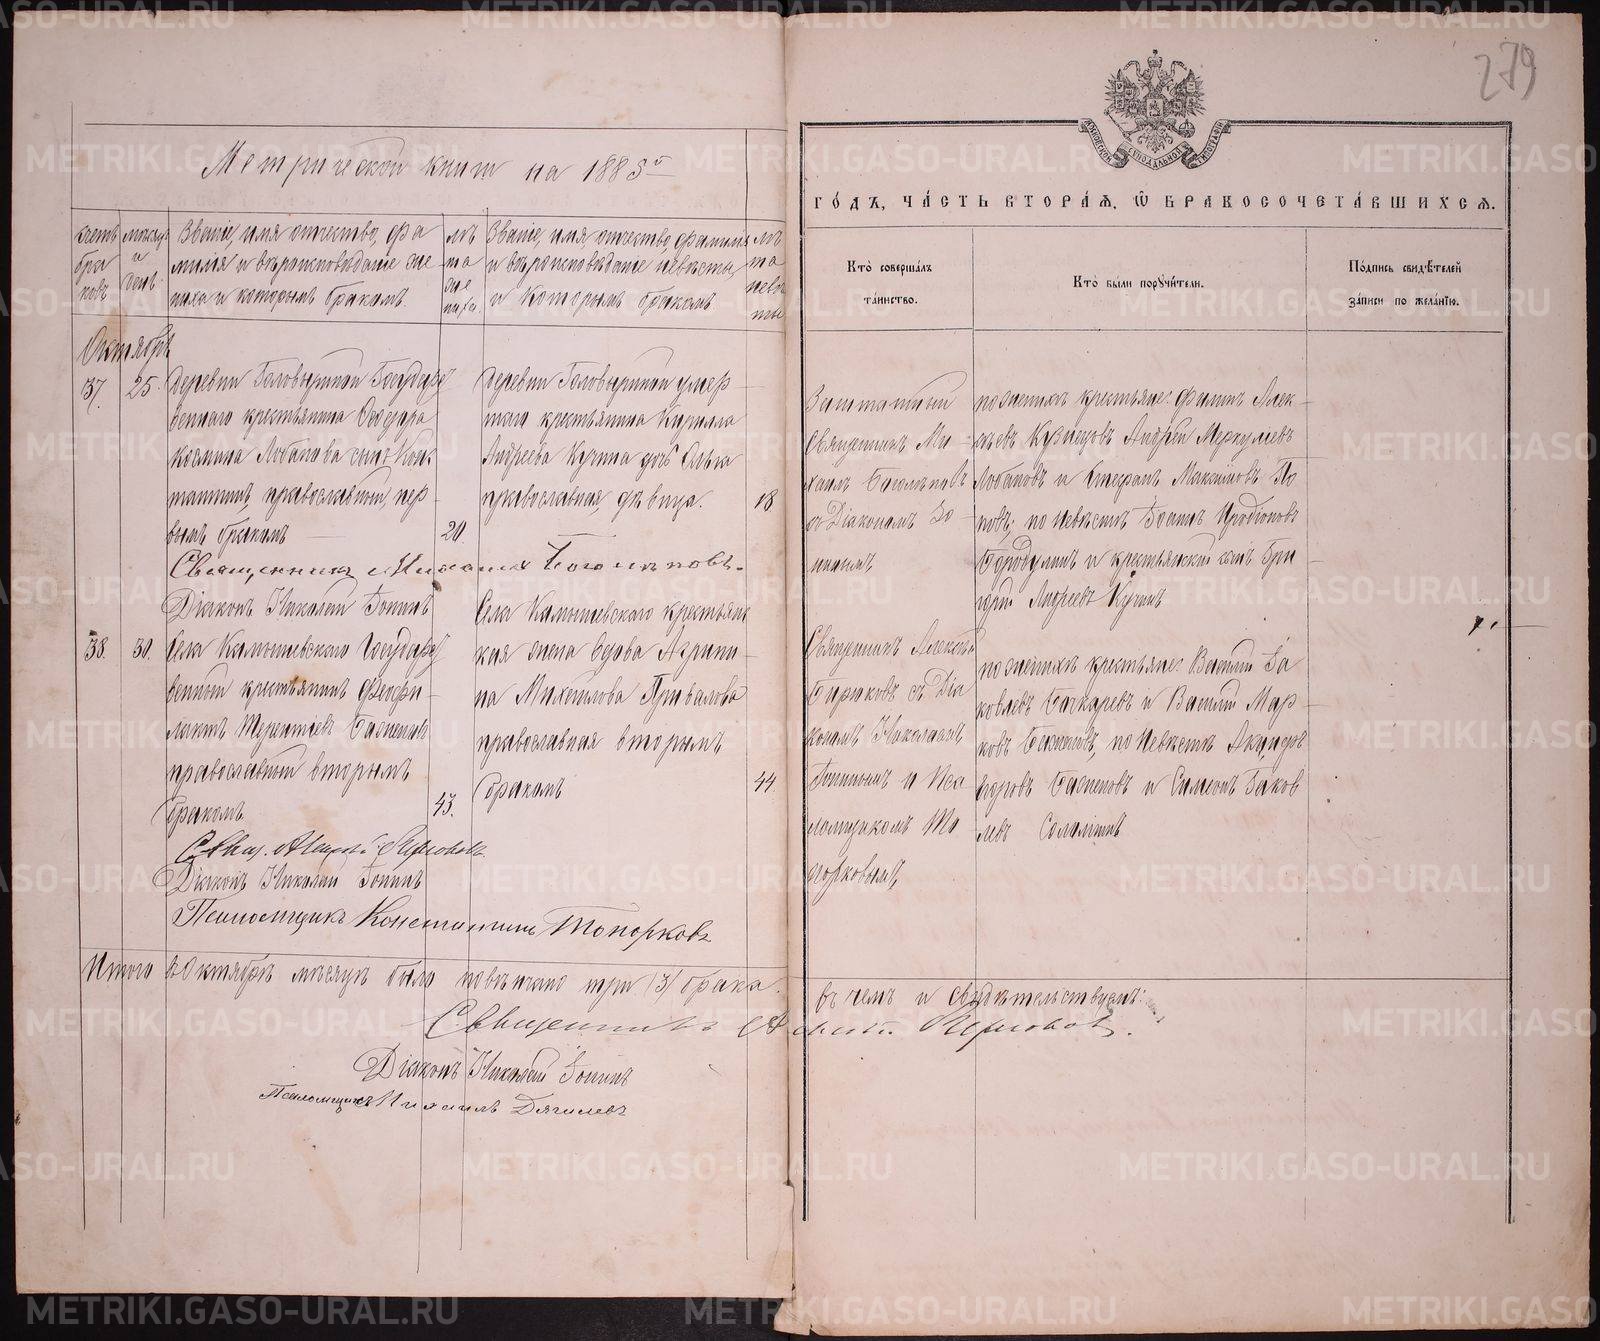 279
Метрической книги на 1885й
годъ, часть вторая, ѿ бракосочетавшихся.
счетъ браковъ
мѣсяцъ и день
Званіе, имя отчество, фа
милія и вѣроисповѣданіе же
ниха и которымъ бракомъ
лѣта жениха
Званіе, имя, отчество, фамилія
и вѣроисповѣданіе невѣсты,
и которымъ бракомъ
лѣта невѣсты
Кто совершалъ
таинство.
Кто были поручители.
Подпись свидѣтелей
записи по желанію.
Октябрь
37. 25.
Деревни Головыриной Государс
веннаго крестьянина Ѳеодора
Козмина Лобанова сынъ Конс
тантинъ, православный, пер
вымъ бракомъ
20.
Деревни Головыриной умер
шаго крестьянина Кирилла
Андреева Кучина дочь Ольга
православная, дѣвица.
18
Заштатный
Священникъ Ми
хаилъ Богомѣповъ
съ Діакономъ Іо
нинымъ
по женихѣ крестьяне: Филипъ Алек
сѣевъ Кузнецовъ Андрей Меркульевъ
Лобановъ и Стефанъ Максимовъ По
повъ; по невѣстѣ Іоаннъ Иродіоновъ
Бородулинъ и крестьянскій сынъ Гри
горій Андреевъ Кучинъ
Священникъ Михаилъ Богомѣповъ.
Діаконъ Николай Іонинъ
38. 30.
Села Камышевскаго Государс
венный крестьянинъ Феофи
лактъ Терентіевъ Бажен
православный вторымъ
бракомъ.
43.
Села Камышевскаго крестьянс
кая жена вдова Агрипи
на Михайлова Привалова
православная вторымъ
бракомъ
44
Священникъ Алексѣй
Бирюковъ съ Діа
кономъ Николаемъ
Іонинымъ и Пса
ломщикомъ То
порковымъ,
по женихѣ крестьяне: Василій Іа
ковлевъ Бочкаревъ и Василій Мар
ковъ по невѣстѣ
и Симеонъ Іаков
левъ Соломеинъ
Свящ. Алексѣй Бирюковъ.
Діаконъ Николай Іонинъ
Псаломщикъ Константинъ Топорковъ
Итого въ Октябрѣ мѣсяцѣ было повѣнчано три /3/ брака. въ чемъ и свидѣтельствуемъ:
Священникъ Алексѣй Бирюковъ.
Діаконъ Николай Іонинъ
Псаломщикъ Михаилъ Дягилевъ
METRIKI.GASO-URAL.RU